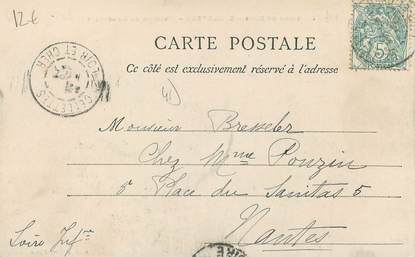 12€
CARTE POSTALE
Ce côté est exclusivement réservé à l'adresse
CELLETTES
LOIR ET CHER
5
Monsieur Bresseler
Chez Mme Pouzin
5 Place du Sanitas 5
Nantes
Loire Infre